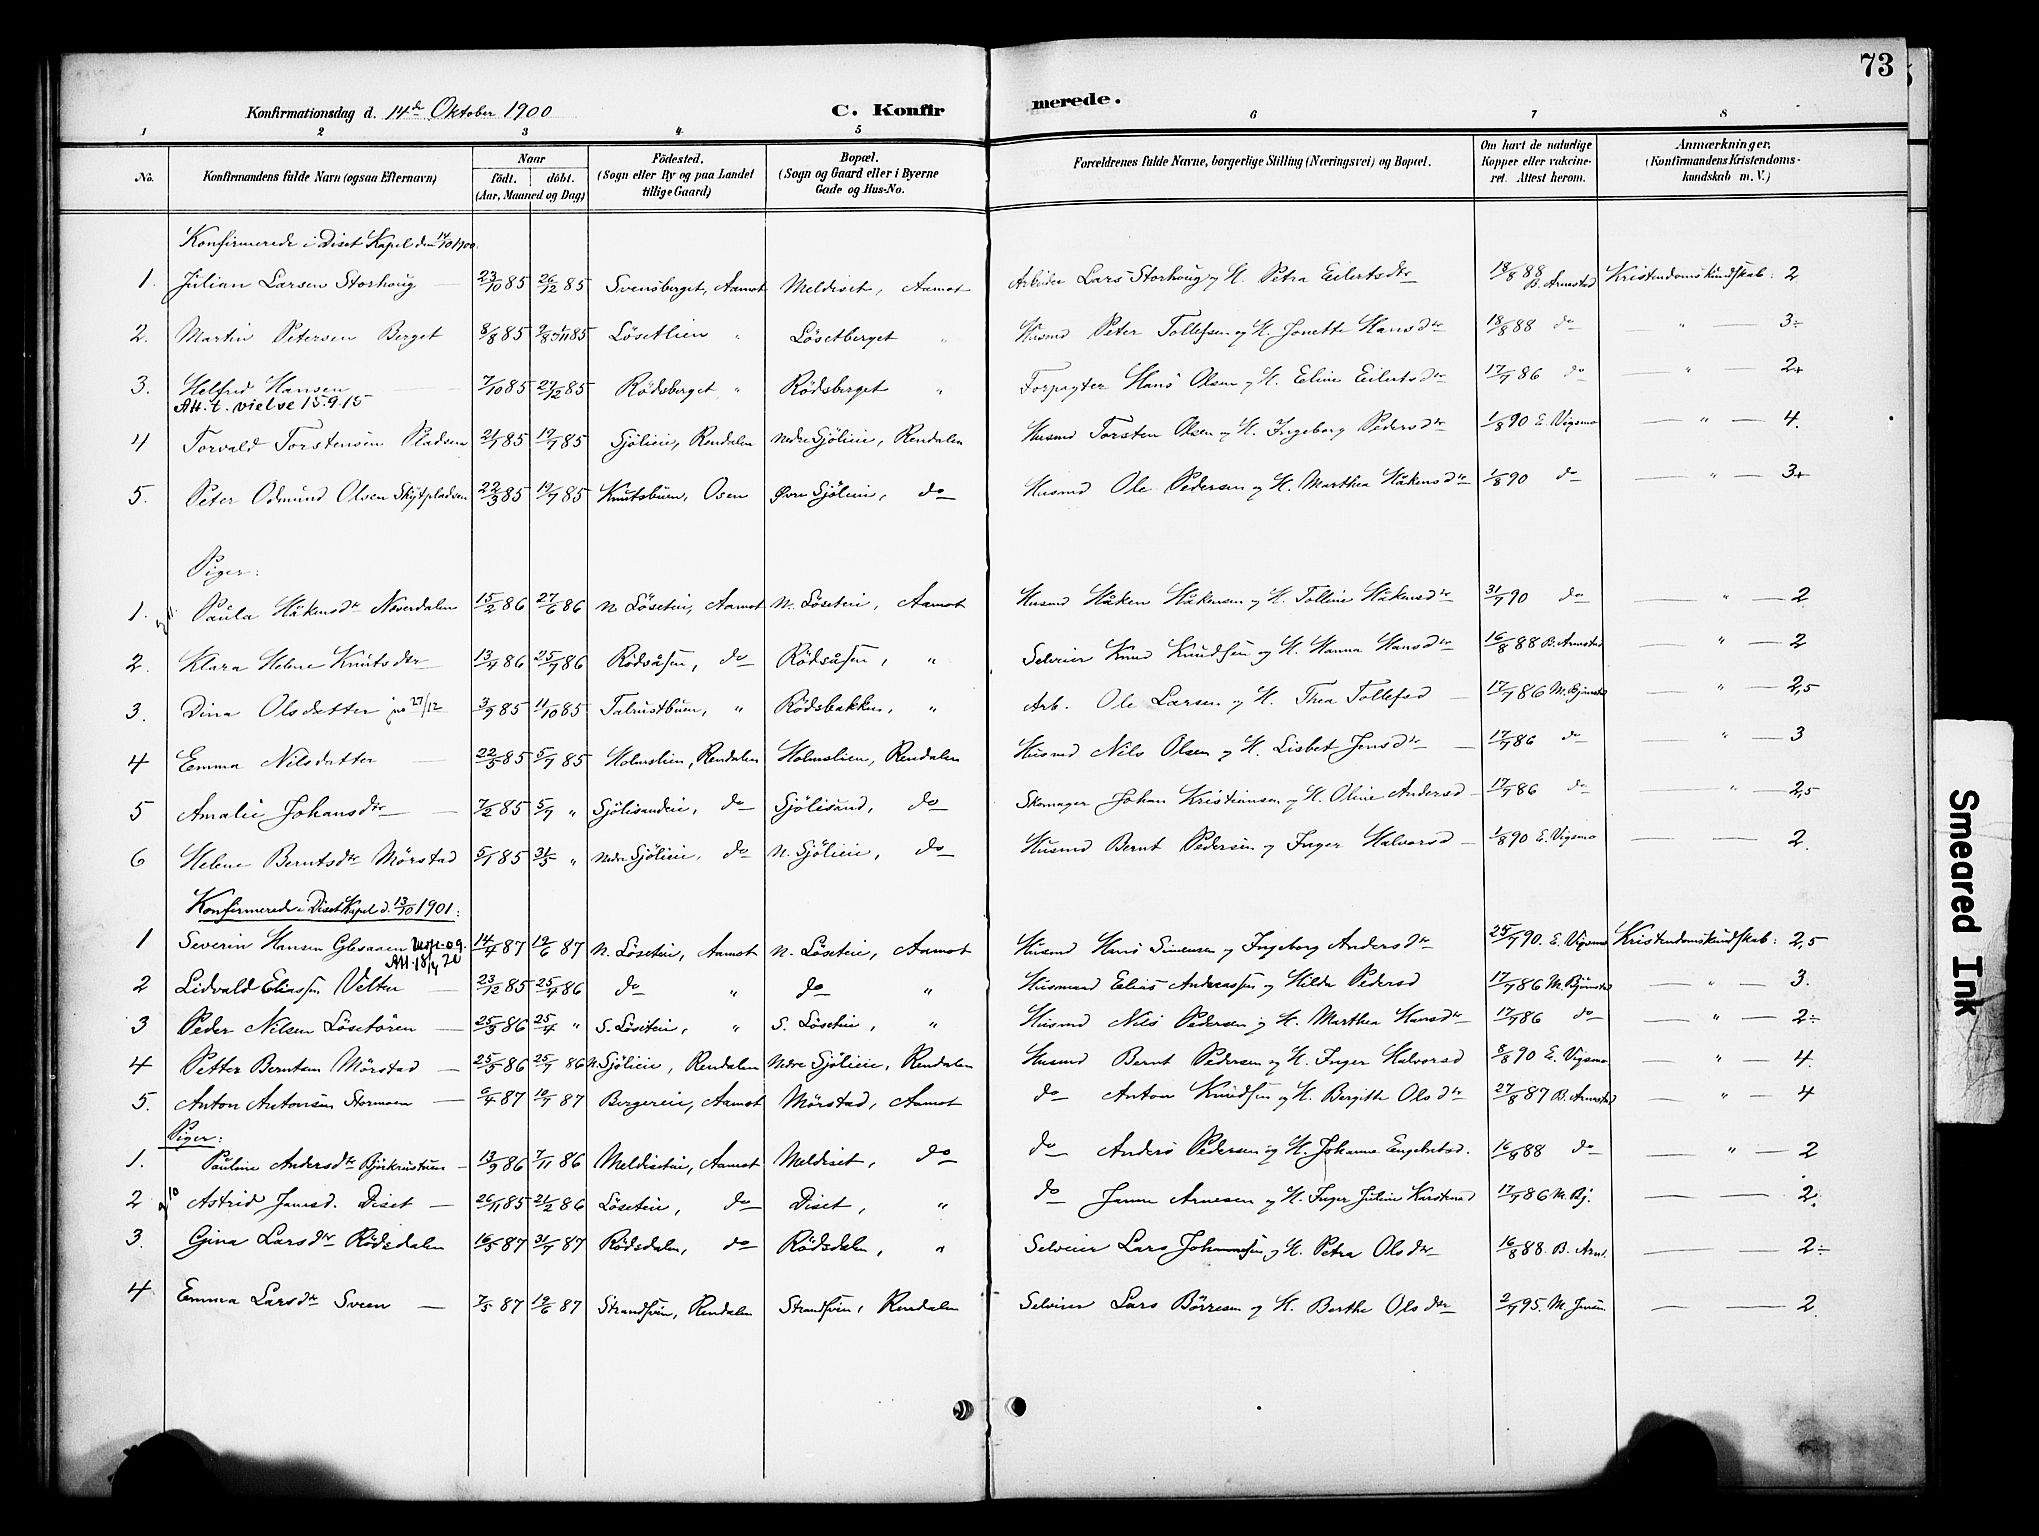 73
Konfirmationsdag d. 14de Oktober 1900 C. Konfirmerede.
1 2 3 4 5 6 7 8
No. Konfirmandens fulde Navn (ogsaa Efternavn) Naar født. døbt. (Aar, Maaned og Dag) Fødested. (Sogn eller By og paa Landet tillige Gaard) Bopæl. (Sogn og Gaard eller i Byerne Gade og Hus-No. Forældrenes fulde Navne, borgerlige Stilling (Næringsvei) og Bopæl. Om havt de naturlige Kopper eller vakcineret. Attest herom. Anmærkninger, (Konfirmandens Kristendomskundskab m. V.)
Konfirmerede i Diset Kapel den 14/10 1900.
1. Julian Larsen Storhoug — 23/10 85 26/12 85 Svensberget, Aamot Meldiset, Aamot Arbeider Lars Storhoug og H. Petra Eilertsdtr 18/8 88 B. Arnestad Kristendomskundskab: 2
2. Martin Petersen Berget 8/8 85 85 Løsetlien " Løsetberget " Husmd Peter Tollefsen og H. Jonette Hansdtr 18/8 88 do — " — 3÷
3. Helfred Hansen 7/10 85 27/12 85 Rødsberget " Rødsberget " Forpagter Hans Olsen og H. Eline Eilertsdtr 17/7 86 do — " — 2+
Att. t. vielse 15.9.15
4 Torvald Torstensen Pladsen 21/1 85 19/7 85 Sjøliein, Rendalen Nedre Sjøliein, Rendalen Husmd Torsten Olsen og H. Ingeborg Pedersdtr 1/8 90 E. Vigsmo — " — 4.
5. Peter Odmund Olsen Skytpladsen 22/3 85 19/7 85 Knutsbuen, Osen Øvre Sjøliein, do Husmd Ole Pedersen og H. Marthea Håkensdtr 1/8 90 do — " — 3+
Piger:
1. Paula Håkensdtr Neverdalen 15/2 86 27/6 86 N. Løseteie, Aamot N. Løseteie, Aamot Husmd Håken Håkensen og H. Tolline Håkensdtr 31/7 90 do — " — 2
2. Klara Helene Knutsdtr 13/4 86 25/7 86 Rødsåsen, do Rødsåsen, " Selveier Knud Knudsen og H. Hanna Hansdtr 16/8 88 B. Arnestad — " — 2
3. Dina Olsdatter 27/12 3/9 85 11/10 85 Talrustbuen, " Rødsbakken, " Arb. Ole Larsen og H. Thea Tollefsd — 17/7 86 M. Bjørnstad — " — 2,5
4 Emma Nilsdatter — 22/3 85 5/7 85 Holmslien, Rendalen Holmslien, Rendalen Husmd Nils Olsen og H. Lisbet Jensdtr — 17/7 86 do — " — 3
5 Amalie Johansdtr — 7/2 85 5/7 " Sjølisandeie, do Sjølisand, do Skomager Johan Kristiansen og H. Oline Andersd — 17/7 86 do — " — 2,5
6 Helene Berntsdtr Mørstad 5/1 85 31/5 " Nedre Sjølieie, do N. Sjølieie, do Husmd Bernt Pedersen og Inger Halvorsd — 1/8 90 E. Vigsmo — — 2.
Konfirmerede i Diset Kapel d. 13/10 1901:
1 Severin Hansen Glesaaen 14/4 87 19/6 87 N. Løseteie, Aamot N. Løseteie, Aamot Husmd Hans Simensen og Ingeborg Andersdtr 25/7 90. E. Vigsmo Kristendomskundskab: 2,5
Att. 18/4 20
2 Lidvald Eliassen Velten — 23/12 85 25/4 86 do " do " Husmand Elias Andreassen og Hilda Pedersd 17/7 86 M. Bjørnstad — " — 3.
3 Peder Nilsen Løsetøren — 25/3 86 25/4 " S. Løseteie, " S. Løseteie, " Husmd Nils Pedersen og H. Marthea Hansdtr 17/7 86 do — " — 2÷
4 Petter Berntsen Mørstad — 25/5 86 25/7 86 N. Sjølieie, Rendalen Nedre Sjølieie, Rendalen Husmd Bernt Pedersen og H. Inger Halvorsd 8/8 90 E. Vigsmo — " — 4.
5. Anton Antonsen Stormoen — 6/4 87 10/7 87 Bergereie, Aamot Mørstad, Aamot do Anton Knudsen og H. Bergitte Olsdtr 27/8 87 B. Arnestad — " — 4
Piger:
1. Pauline Andersdtr Bjørkrusteien — 13/9 86 7/11 86 Meldiseteie, Aamot Meldiset, do do Anders Pedersen og H. Johanne Engebretsd. 16/8 88 do — " — 2
2 Astrid Jamsd. Diset — 26/11 85 21/2 86 Løseteie, do Diset, " do Janne Arnesen og H. Inger Juline Karstensd 17/7 86 M. Bj. — — 2.
3. Gina Larsdtr Rødsdalen 16/5 87 31/7 87 Rødsdalen, do Rødsdalen, " Selveier Lars Johannesen og H. Petra Olsdtr 16/8 88 B. Arnt. — — 2÷
4 Emma Larsdtr Sveen — 7/5 87 19/6 87 Strandsveen, Rendalen Strandsveen, Rendalen Selveier Lars Børresen og H. Berthe Olsdtr 2/7 95. M. Jensen — — 2.
Smeared Ink